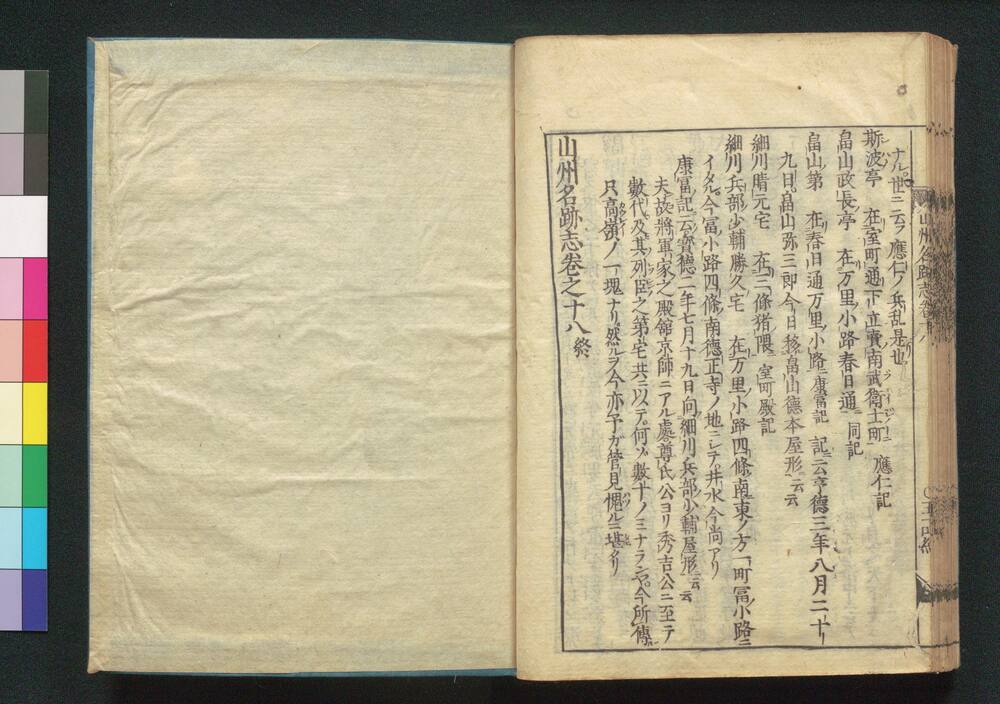 ナル世ニ云フ應仁ノ兵乱是也
斯波亭 在室町通下立賣南武衛士町 應仁記
畠山政長亭 在万里小路春日通 同記
畠山第 在春日通万里小路 康富記 記云享德三年八月二十
九日畠山弥三郎今日移畠山德本屋形云云
細川晴元宅 在三條猪隈 室町殿記
細川兵部少輔勝久宅 在万里小路四條南東ノ方一町冨小路ニ
イタル今冨小路四條南德正寺ノ地ニシテ井水今尚アリ
康冨記云寳德二年七月十九日向細川兵部少輔屋形云云
夫故將軍家之殿舘京師ニアル處尊氏公ヨリ秀吉公ニ至テ
數代及其列臣之第宅共ニ以テ何ソ數十ノミナランヤ今所傳
只高嶺ノ一塊ナリ然ルヲ今亦予ガ管見愧ルニ堪タリ
山州名跡志巻之十八終
山州名跡志巻十八